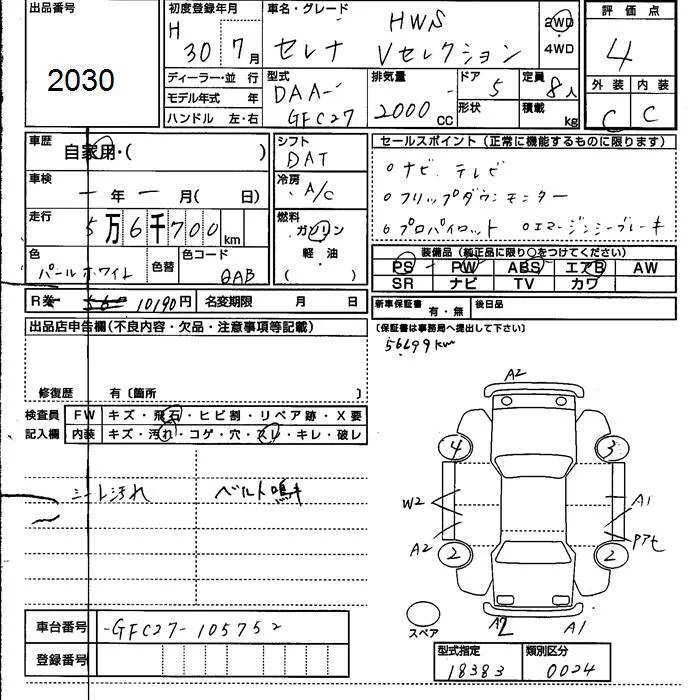 出品番号
2030
初度登録年月
H 30 7月
車名・グレード
HWS
セレナ Vセレクション
2WD
4WD
評価点
4
外装 内装
C C
ディーラー・並行
モデル年式 年
ハンドル 左・右
型式
DAA-
GFC27
排気量
2000 CC
ドア 5
形状
定員 8人
積載 kg
車歴
自家用・( )
車検
一年一月( 日)
走行
5万6千700km
色
パールホワイト
色替
色コード
QAB
シフト
DAT
冷房
A/C
燃料
ガソリン
軽・油
( )
セールスポイント (正常に機能するものに限ります)
○ナビ、テレビ
○フリップダウンモニター
○プロパイロット ○エマージンシーブレーキ
装備品(純正品に限り○をつけてください)
PS PW ABS エアB AW
SR ナビ TV カワ
R券 10190円
名変期限 月 日
新車保証書 有・無
後日品
(保証書は事務局へ提出して下さい)
56699km
出品店申告欄(不良内容・欠品・注意事項等記載)
修復歴 有〔箇所 〕
検査員 FW キズ・飛石・ヒビ割・リペア跡・X要
記入欄 内装 キズ・汚れ・コゲ・穴・スレ・キレ・破レ
シート汚れ ベルト鳴キ
A2
4 3
W2 A1
A2 2 2 Pアセ
スペア
A2 A1
車台番号 -GFC27-105752
登録番号
型式指定 類別区分
18383 0024